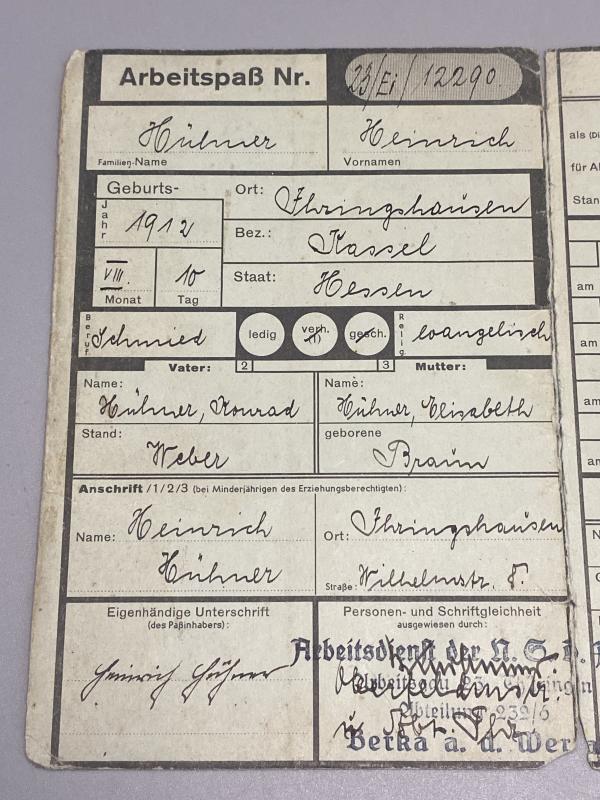 Arbeitspaß Nr. 23/Ei/12290.
Hühner Heinrich
Familien-Name Vornamen
Geburts-
Jahr 1912
VIII. 10
Monat Tag
Ort: Ihringshausen
Bez.: Kassel
Staat: Hessen
Beruf Schmied
ledig verh. (1) gesch.
Relig. evangelisch
Vater: 2 3 Mutter:
Name: Hühner, Konrad
Stand: Weber
Name: Hühner, Elisabeth
geborene Braun
Anschrift /1/2/3 (bei Minderjährigen des Erziehungsberechtigten):
Name: Heinrich
Hühner
Ort: Ihringshausen
Straße: Wilhelmstr. 8.
Eigenhändige Unterschrift
(des Paßinhabers):
Heinrich Hühner
Personen- und Schriftgleichheit
ausgewiesen durch:
Arbeitsdienst der N. S. D.
Arbeitsgau 23
Abteilung 232/6
Berka a. d. Wer
als (Di
für A
Stan
am
am
am
am